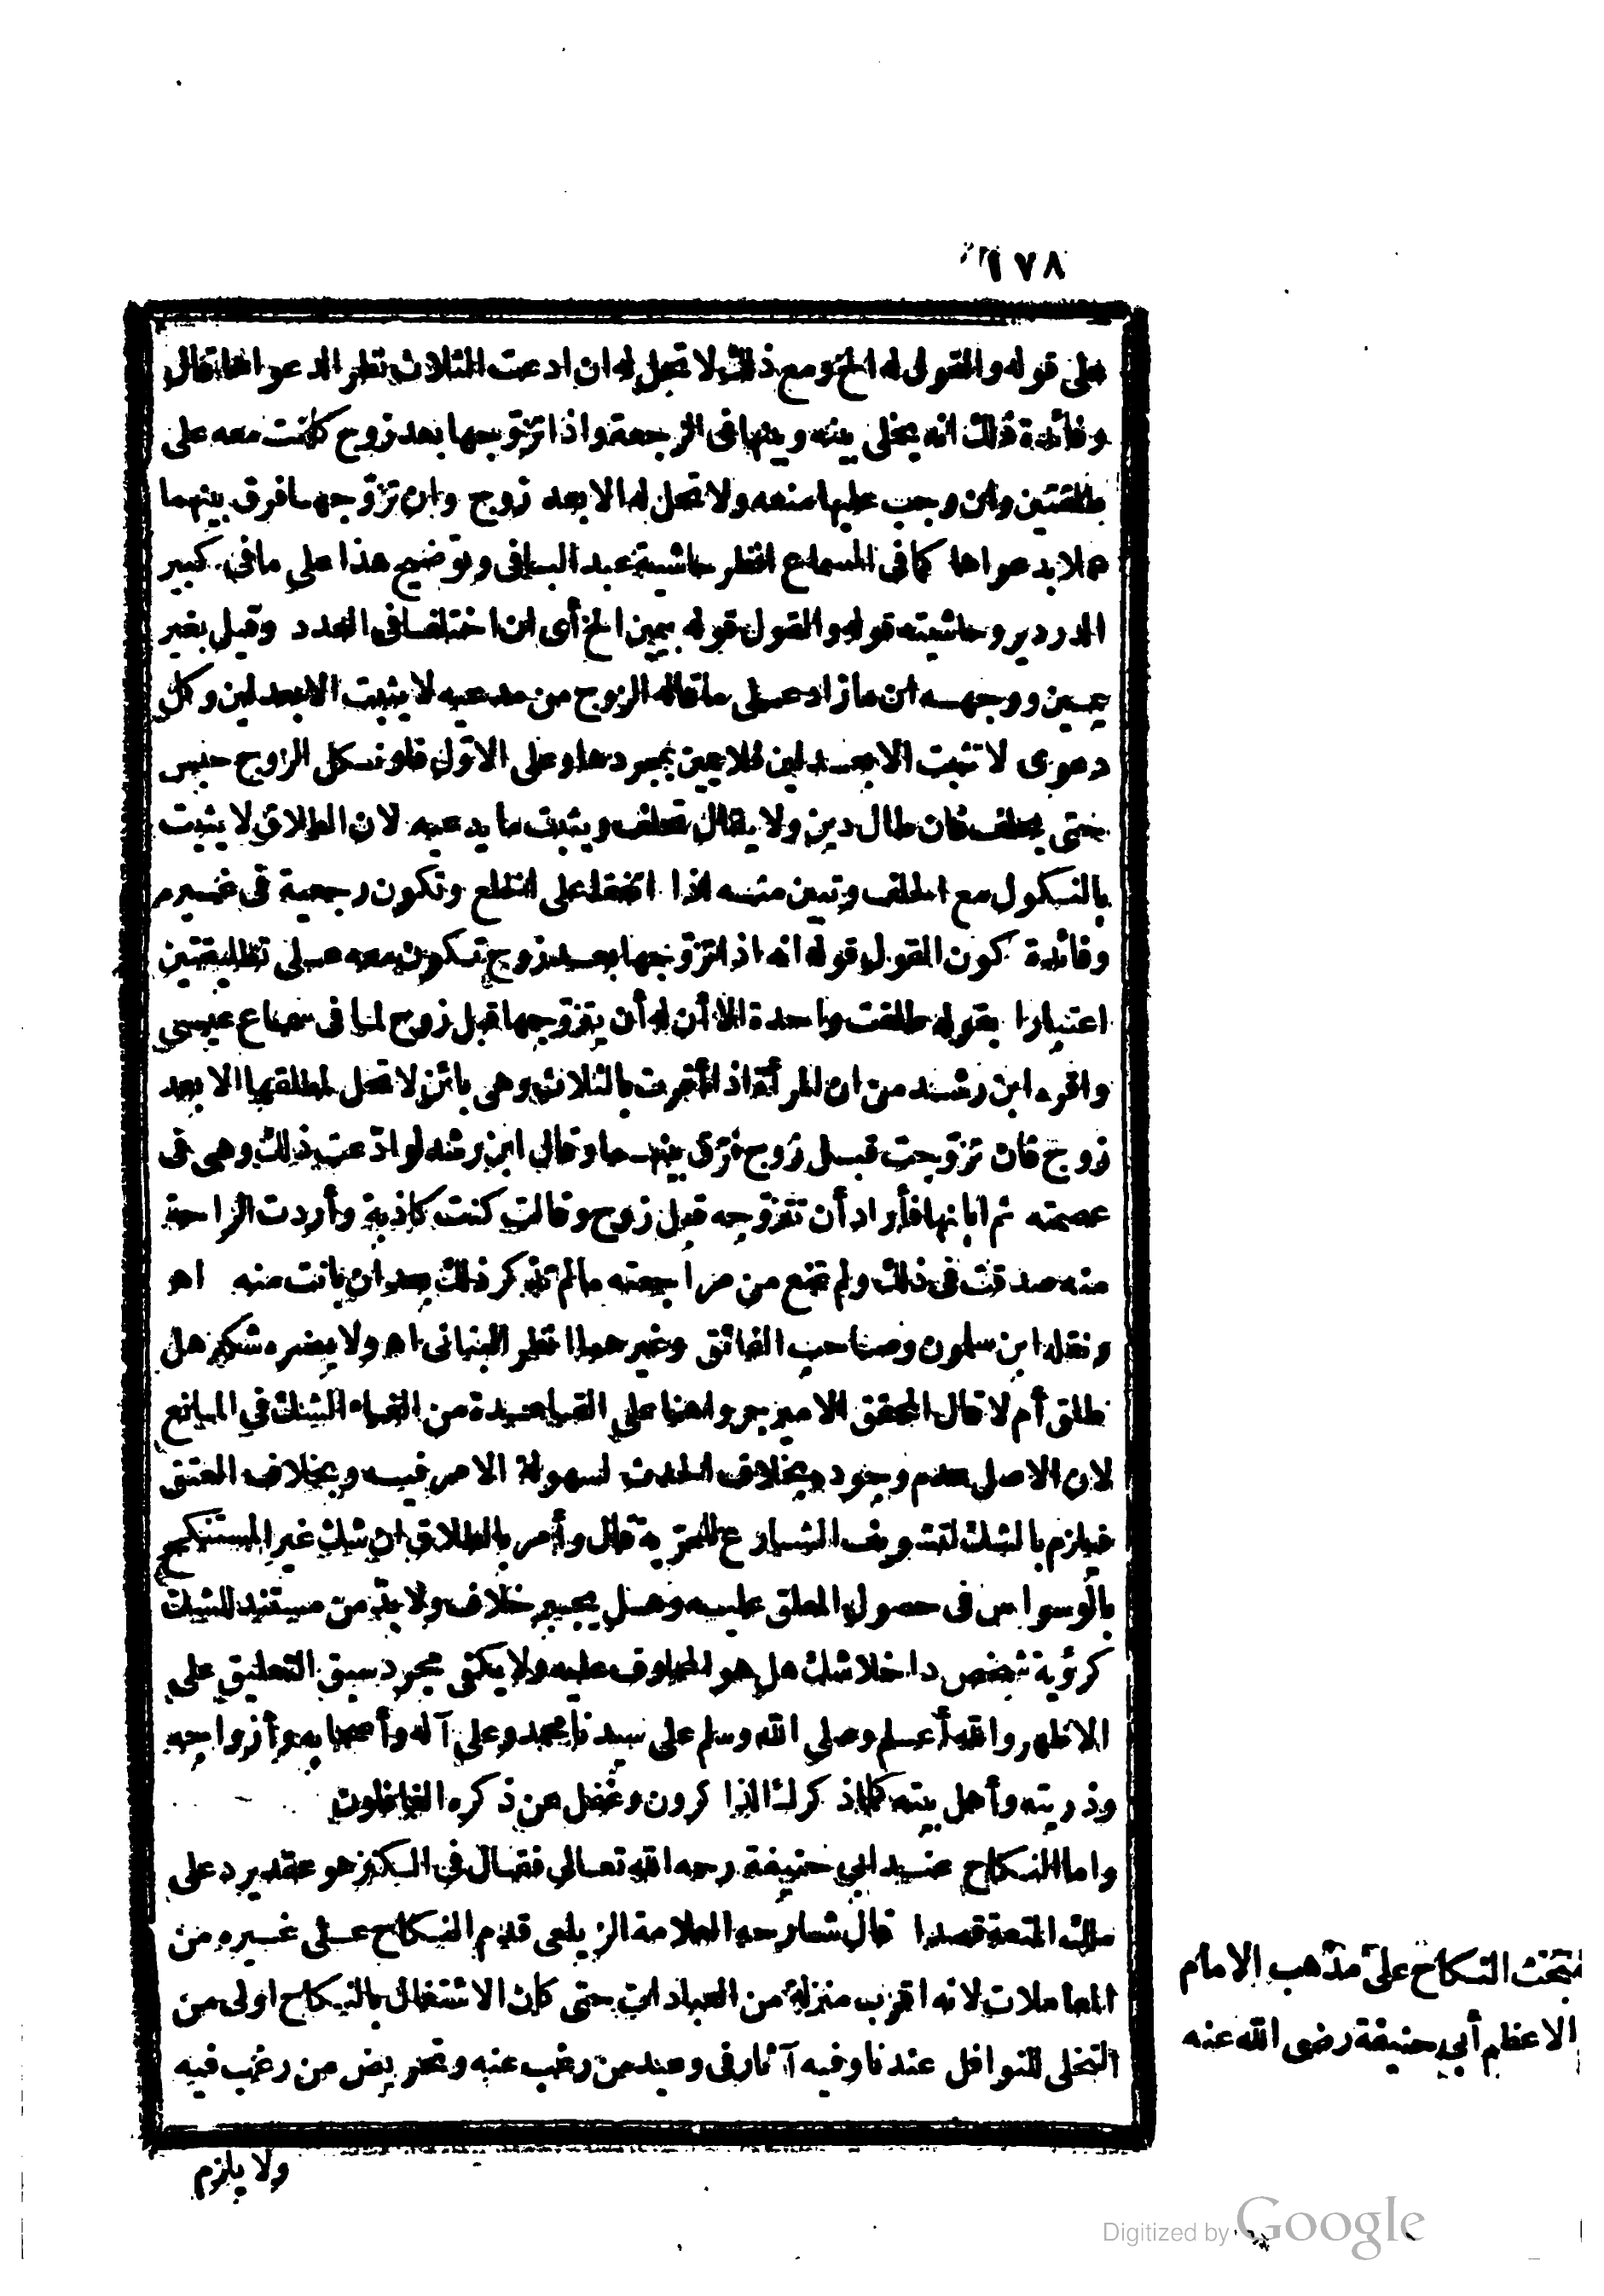 ١٧٨
على قوله والقول له الخ ومع ذلك لا تحل له ان ادعت الثلاث نظرا لدعواها قال
وفائدة ذلك انه يخلى بينه وبينها فى الرجعة واذا تزوّجها بعد زوج كانت معه على
طلقتين وان وجب عليها منعه ولا تحل له الا بعد زوج وان تزوّجها فرق بينهما
عملا بدعواها كما فى السماع انظر حاشية عبد الباقى وتوضيح هذا على ما فى كبير
الدردير وحاشيته قوله والقول قوله بيمين الخ أى ان اختلفا فى العدد وقيل بغير
يمين ووجهه ان ما زاد على ما قاله الزوج من مدعيه لا يثبت الا بعدلين وكل
دعوى لا تثبت الا بعدلين فلا يمين بمجردها وعلى الاوّل فلو نكل الزوج حبس
حتى يحلف فان طال دين ولا يقال تحلف ويثبت ما يدعيه لان الطلاق لا يثبت
بالنكول مع الحلف وتبين منه اذا اتفقا على الخلع وتكون رجعية فى غيره
وفائدة كون القول قوله انه اذا تزوّجها بعد زوج تكون معه على تطليقتين
اعتبارا بقوله طلقت واحدة الا أن له أن يتزوّجها قبل زوج لما فى سماع عيسى
واقره ابن رشد من ان المرأة اذا أقرت بالثلاث وهى بائن لا تحل لمطلقها الا بعد
زوج فان تزوّجت قبل زوج فرق بينهما وقال ابن رشد لو ادّعت ذلك وهى فى
عصمته ثم ابانها فأراد أن تتزوّجه قبل زوج وقالت كنت كاذبة وأردت الراحة
منه صدقت فى ذلك ولم تمنع من مراجعته ما لم تذكر ذلك بعد ان بانت منه اه
ونقله ابن سلون وصاحب الفائق وغيرهما انظر البنانى اه ولا يضره شكه هل
طلق أم لا قال المحقق الامير جروا هنا على القاعدة من الغاء الشك فى المانع
لان الاصل عدم وجوده بخلاف الحدث لسهولة الامر فيه وبخلاف العتق
فيلزم بالشك لتشوف الشارع للحرية قال وأمر بالطلاق ان شك غير المستنكح
بالوسواس فى حصول المعلق عليه وهل يجبر خلاف ولا بدّ من مستند للشك
كرؤية شخص داخلا شك هل هو المحلوف عليه ولا يكفى مجرد سبق التعليق على
الاظهر والله أعلم وصلى الله وسلم على سيدنا محمد وعلى آله وأصحابه وأزواجه
وذريته وأهل بيته كلما ذكرك الذاكرون وغفل عن ذكره الغافلون
واما النكاح عند ابى حنيفة رحمه الله تعالى فقال فى الكنز هو عقد يرد على
ملك المتعة قصدا قال شارحه العلامة الزيلعى قدم النكاح على غيره من
المعاملات لانه اقرب منزلة من العبادات حتى كان الاشتغال بالنكاح اولى من
التخلى للنوافل عندنا وفيه آثار فى وعيد من رغب عنه وتحريض من رغب فيه
مبحث النكاح على مذهب الامام
الاعظم أبى حنيفة رضى الله عنه
ولا يلزم
Digitized by Google